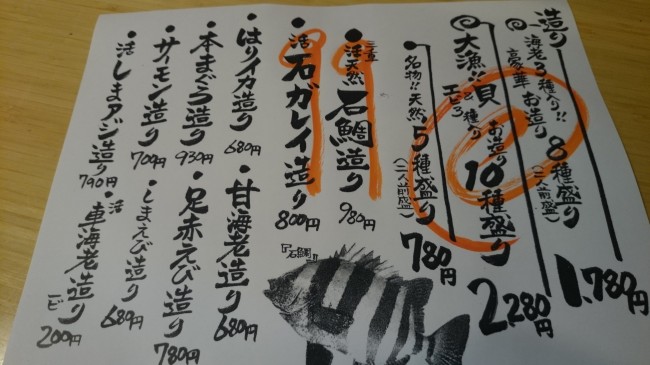 造り
海老3種入り!!
豪華お造り8種盛り
(二人前盛)
1.780円
大漁!!貝&エビ3種り
お造り10種盛り
2.280円
名物!!天然5種盛り
(一人前盛)
780円
活天然石鯛造り
980円
活石ガレイ造り
800円
『石鯛』
はりイカ造り
680円
甘海老造り
680円
本まぐろ造り
930円
足赤えび造り
780円
サーモン造り
700円
しまえび造り
689円
活しまアジ造り
790円
活車海老造り
200円